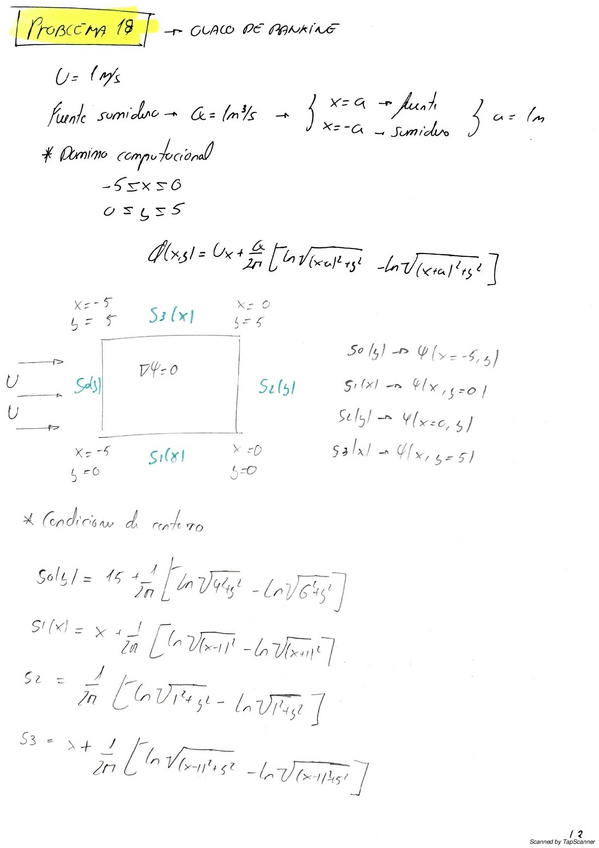 PROBLEMA 18 → OVALO DE RANKINE
U = 1 m/s
Fuente sumidero → Q = 1m³/s → { x = a → fuente
x = -a → sumidero } a = 1m
* Dominio computacional
-5 ≤ x ≤ 0
0 ≤ y ≤ 5
φ(x,y) = Ux + Q/2π [ln√((x-a)²+y²) - ln√((x+a)²+y²)]
x = -5 S3(x) x = 0
y = 5 y = 5
U S0(y) ∇Ψ=0 S2(y)
U
x = -5 S1(x) x = 0
y = 0 y = 0
S0(y) → Ψ(x=-5, y)
S1(x) → Ψ(x, y=0)
S2(y) → Ψ(x=0, y)
S3(x) → Ψ(x, y=5)
* Condiciones de contorno
S0(y) = 15 + 1/2π [ln√(4²+y²) - ln√(6²+y²)]
S1(x) = x + 1/2π [ln√(x-1)² - ln√(x+1)²]
S2 = 1/2π [ln√(1²+y²) - ln√(1²+y²)]
S3 = x + 1/2π [ln√((x-1)²+5²) - ln√((x-1)²+5²)]
12
Scanned by TapScanner